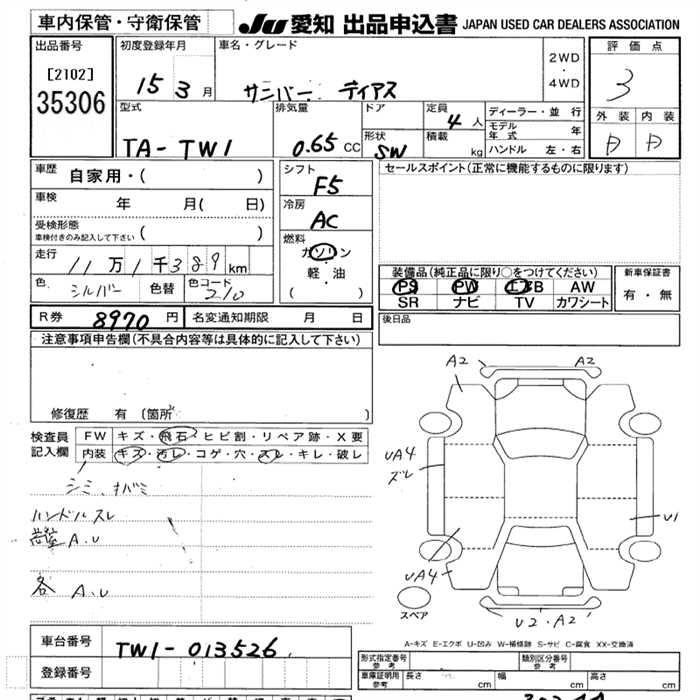 車内保管・守衛保管
JU 愛知 出品申込書 JAPAN USED CAR DEALERS ASSOCIATION
出品番号
[2102]
35306
初度登録年月
15 3 月
車名・グレード
サニバー ディアス
2WD
・
4WD
評価点
3
外装 内装
型式
TA-TW1
排気量
0.65 CC
ドア
形状
SW
定員
4 人
積載
kg
ディーラー・並行
モデル年式 年
ハンドル 左・右
車歴
自家用・( )
車検
年 月( 日)
受検形態
車検付きのみ記入して下さい ( )
走行
11万1千389km
色 シルバー 色替 色コード 210
シフト
F5
冷房
AC
燃料
ガソリン
軽・油
( )
セールスポイント(正常に機能するものに限ります)
装備品(純正品に限り○をつけてください)
PS PW エアB AW
SR ナビ TV カワシート
新車保証書
有・無
R券 8970 円 名変通知期限 月 日
後日品
注意事項申告欄(不具合内容等は具体的に記入して下さい)
修復歴 有 (箇所 )
検査員記入欄
FW キズ・飛石・ヒビ割・リペア跡・X要
内装 キズ・汚レ・コゲ・穴・スレ・キレ・破レ
シミ、
ハンドルスレ
A.U
各 A.U
A2 A2
UA4
ズレ
U1
UA4
スペア
U2・A2
A-キズ E-エクボ U-凹み W-補修跡 S-サビ C-腐食 XX-交換済
車台番号
TW1-013526
登録番号
形式指定番号
参考
類別区分番号
参考
車庫証明用
参考
長さ cm 幅 cm 高さ cm